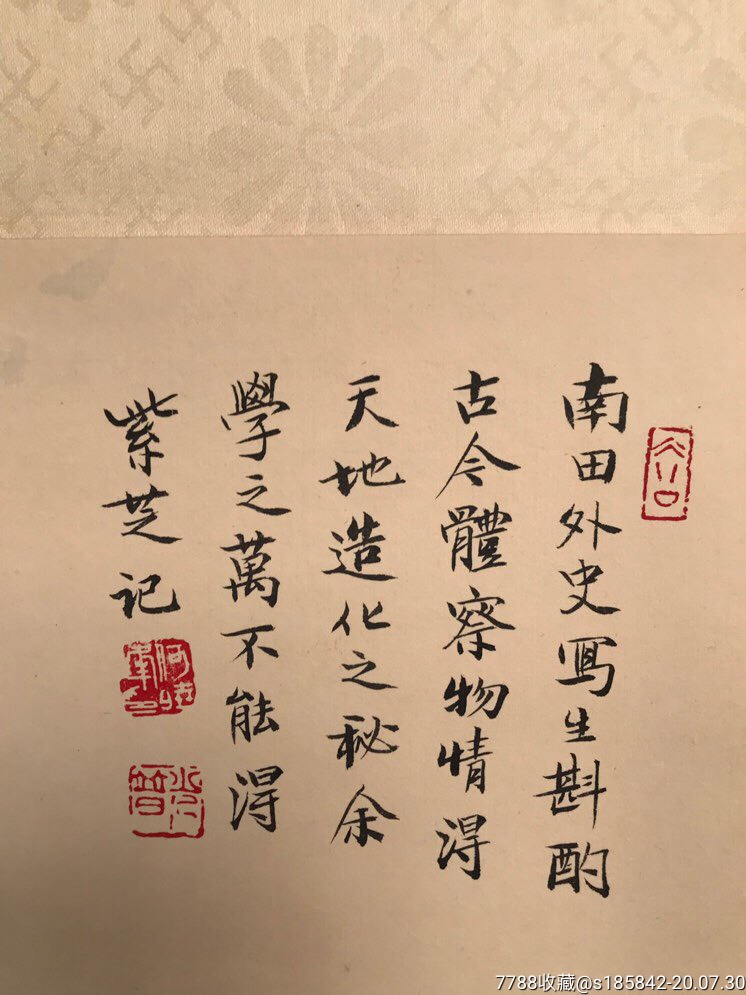 南田外史寫生斟酌
古今體察物情淂
天地造化之秘余
學之萬不能淂
紫芝记
7788收藏@s185842-20.07.30